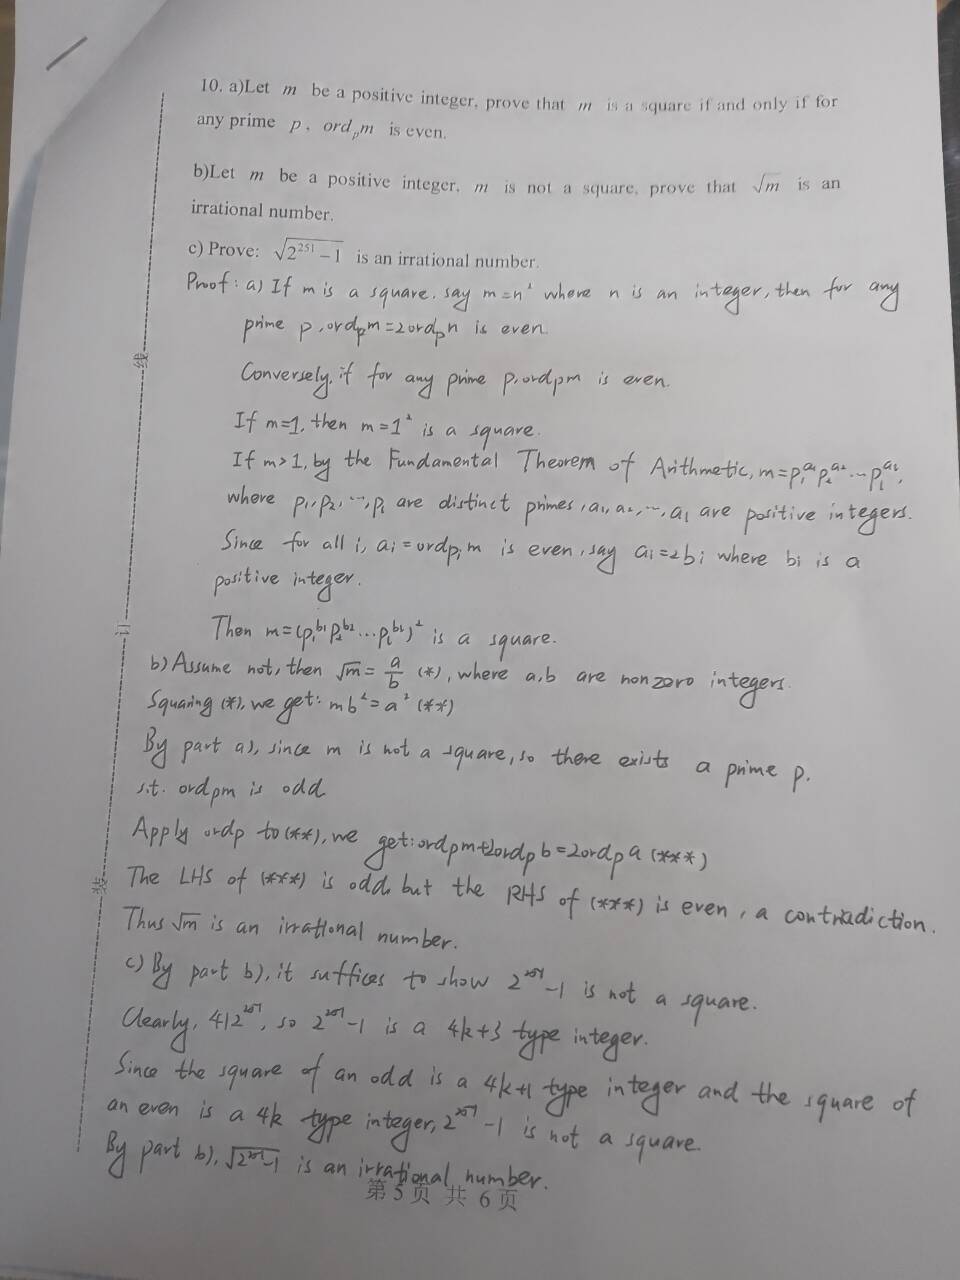 10. a)Let m be a positive integer, prove that m is a square if and only if for
any prime p, ord_p m is even.
b)Let m be a positive integer, m is not a square, prove that √m is an
irrational number.
c) Prove: √(2^251 − 1) is an irrational number.
Proof: a) If m is a square, say m=n² where n is an integer, then for any
prime p, ord_p m = 2ord_p n is even.
Conversely, if for any prime p, ord_p m is even.
If m=1, then m=1² is a square.
If m>1, by the Fundamental Theorem of Arithmetic, m=p₁^a₁ p₂^a₂ … p_l^a_l,
where p₁, p₂, …, p_l are distinct primes, a₁, a₂, …, a_l are positive integers.
Since for all i, a_i = ord_p_i m is even, say a_i=2b_i where b_i is a
positive integer.
Then m=(p₁^b₁ p₂^b₂ … p_l^b_l)² is a square.
b) Assume not, then √m = a/b (*), where a,b are nonzero integers.
Squaring (*), we get: mb²=a² (**)
By part a), since m is not a square, so there exists a prime p.
s.t. ord_p m is odd
Apply ord_p to (**), we get: ord_p m+2ord_p b=2ord_p a (***)
The LHS of (***) is odd, but the RHS of (***) is even, a contradiction.
Thus √m is an irrational number.
c) By part b), it suffices to show 2^251 −1 is not a square.
Clearly, 4|2^251, so 2^251 −1 is a 4k+3 type integer.
Since the square of an odd is a 4k+1 type integer and the square of
an even is a 4k type integer, 2^251 −1 is not a square.
By part b), √(2^251 −1) is an irrational number.
第 5 页 共 6 页
线
订
装